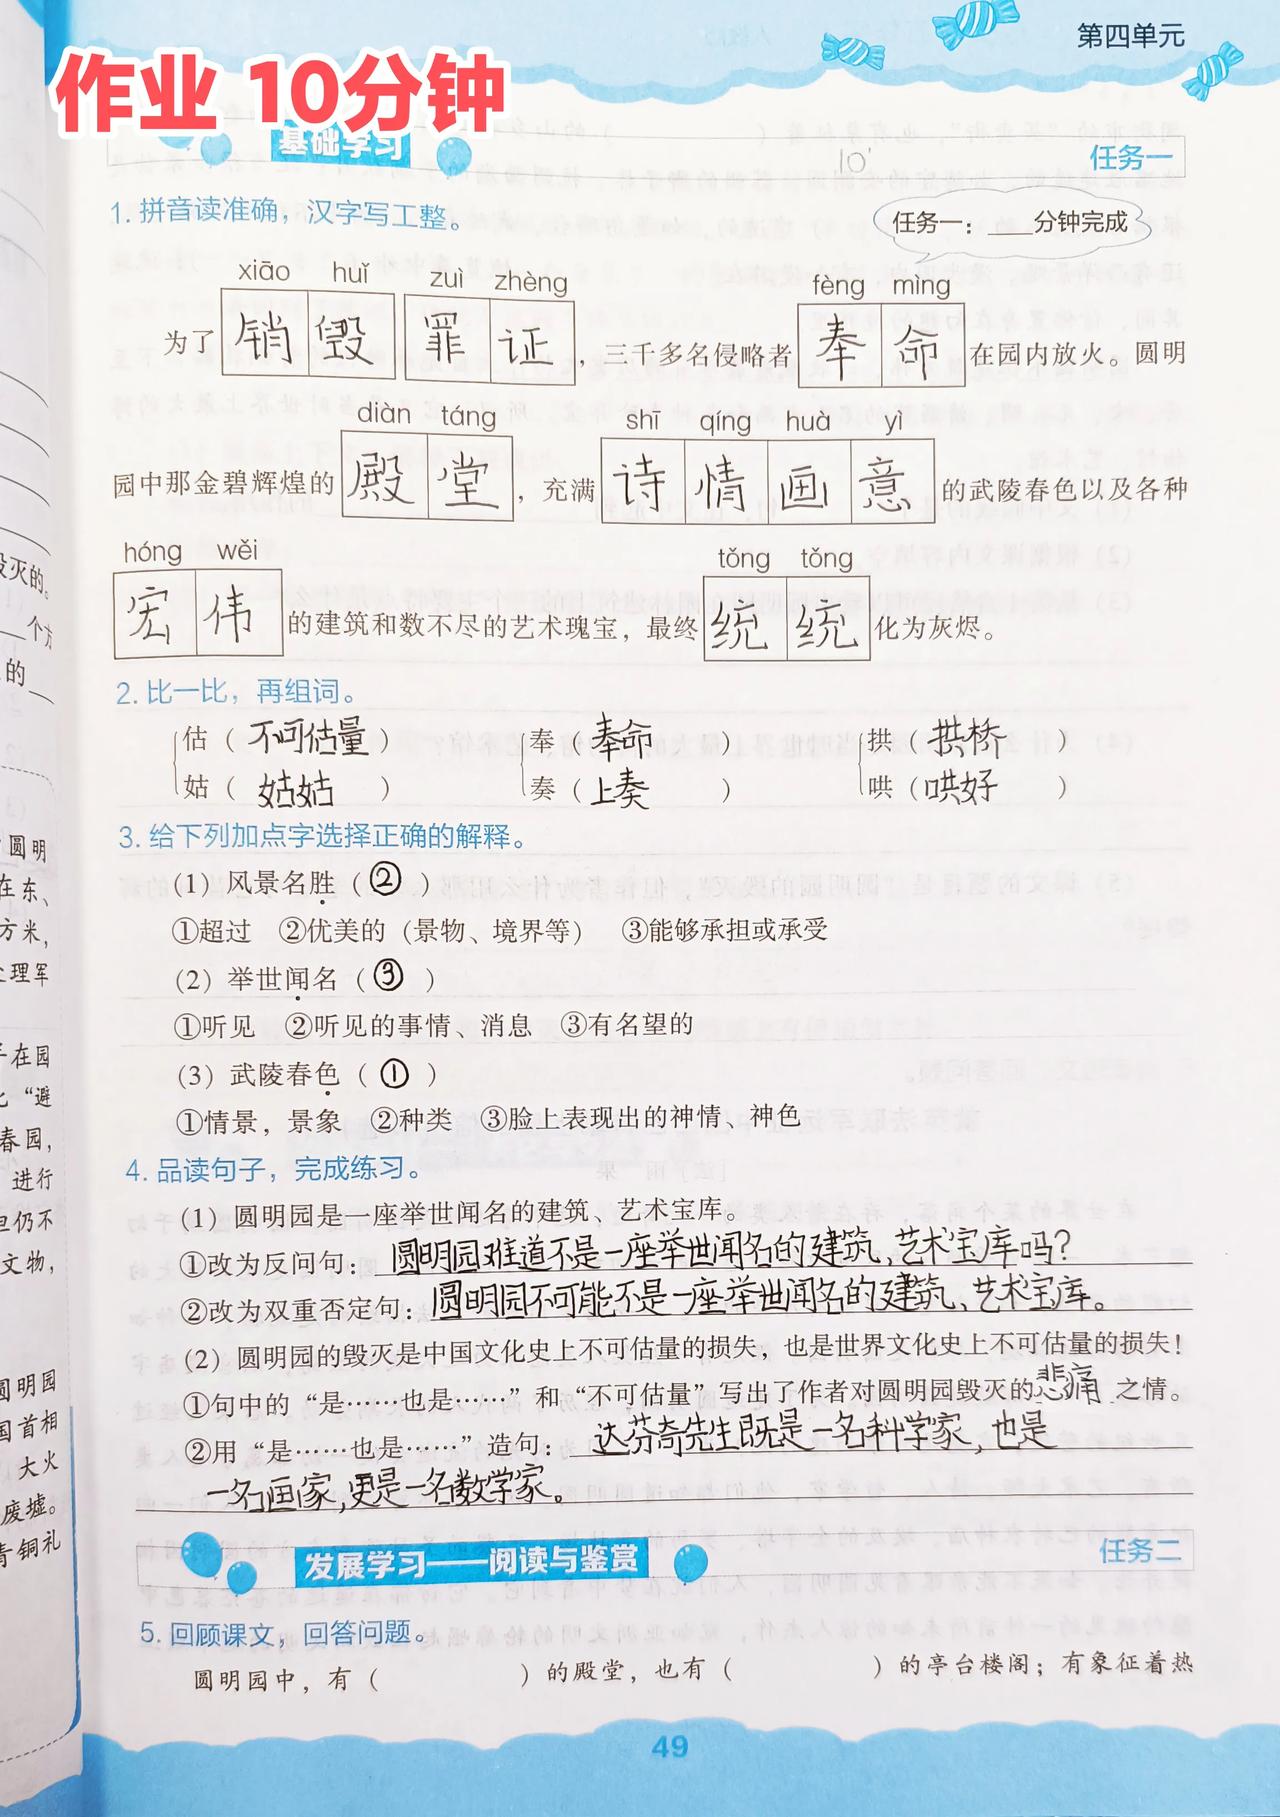 第四单元
作业 10分钟
基础学习
10'
任务一
1. 拼音读准确，汉字写工整。
任务一：___分钟完成
xiāo huǐ zuì zhèng fèng mìng
为了销毁罪证，三千多名侵略者奉命在园内放火。圆明
diàn táng shī qíng huà yì
园中那金碧辉煌的殿堂，充满诗情画意的武陵春色以及各种
hóng wěi tǒng tǒng
宏伟的建筑和数不尽的艺术瑰宝，最终统统化为灰烬。
2. 比一比，再组词。
估（不可估量） 奉（奉命） 拱（拱桥）
姑（姑姑） 奏（上奏） 哄（哄好）
3. 给下列加点字选择正确的解释。
(1) 风景名胜（②）
①超过 ②优美的（景物、境界等） ③能够承担或承受
(2) 举世闻名（③）
①听见 ②听见的事情、消息 ③有名望的
(3) 武陵春色（①）
①情景，景象 ②种类 ③脸上表现出的神情 神色
4. 品读句子，完成练习。
(1) 圆明园是一座举世闻名的建筑、艺术宝库。
①改为反问句：圆明园难道不是一座举世闻名的建筑、艺术宝库吗？
②改为双重否定句：圆明园不可能不是一座举世闻名的建筑、艺术宝库。
(2) 圆明园的毁灭是中国文化史上不可估量的损失，也是世界文化史上不可估量的损失！
①句中的“是……也是……”和“不可估量”写出了作者对圆明园毁灭的悲痛之情。
②用“是……也是……”造句：达芬奇先生既是一名科学家，也是
一名画家，更是一名数学家。
发展学习——阅读与鉴赏
任务二
5. 回顾课文，回答问题。
圆明园中，有（ ）的殿堂，也有（ ）的亭台楼阁；有象征着热
49
毁灭的。
个方
的
圆明
在东、
方米，
处理军
子在园
“避
春园，
进行
但仍不
文物，
圆明园
国首相
大火
废墟。
青铜礼